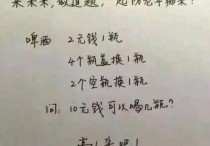 来来来,做道题,一起防老年痴呆!
啤酒 2元钱1瓶
4个瓶盖换1瓶
2个空瓶换1瓶
问:10元钱可以喝几瓶?